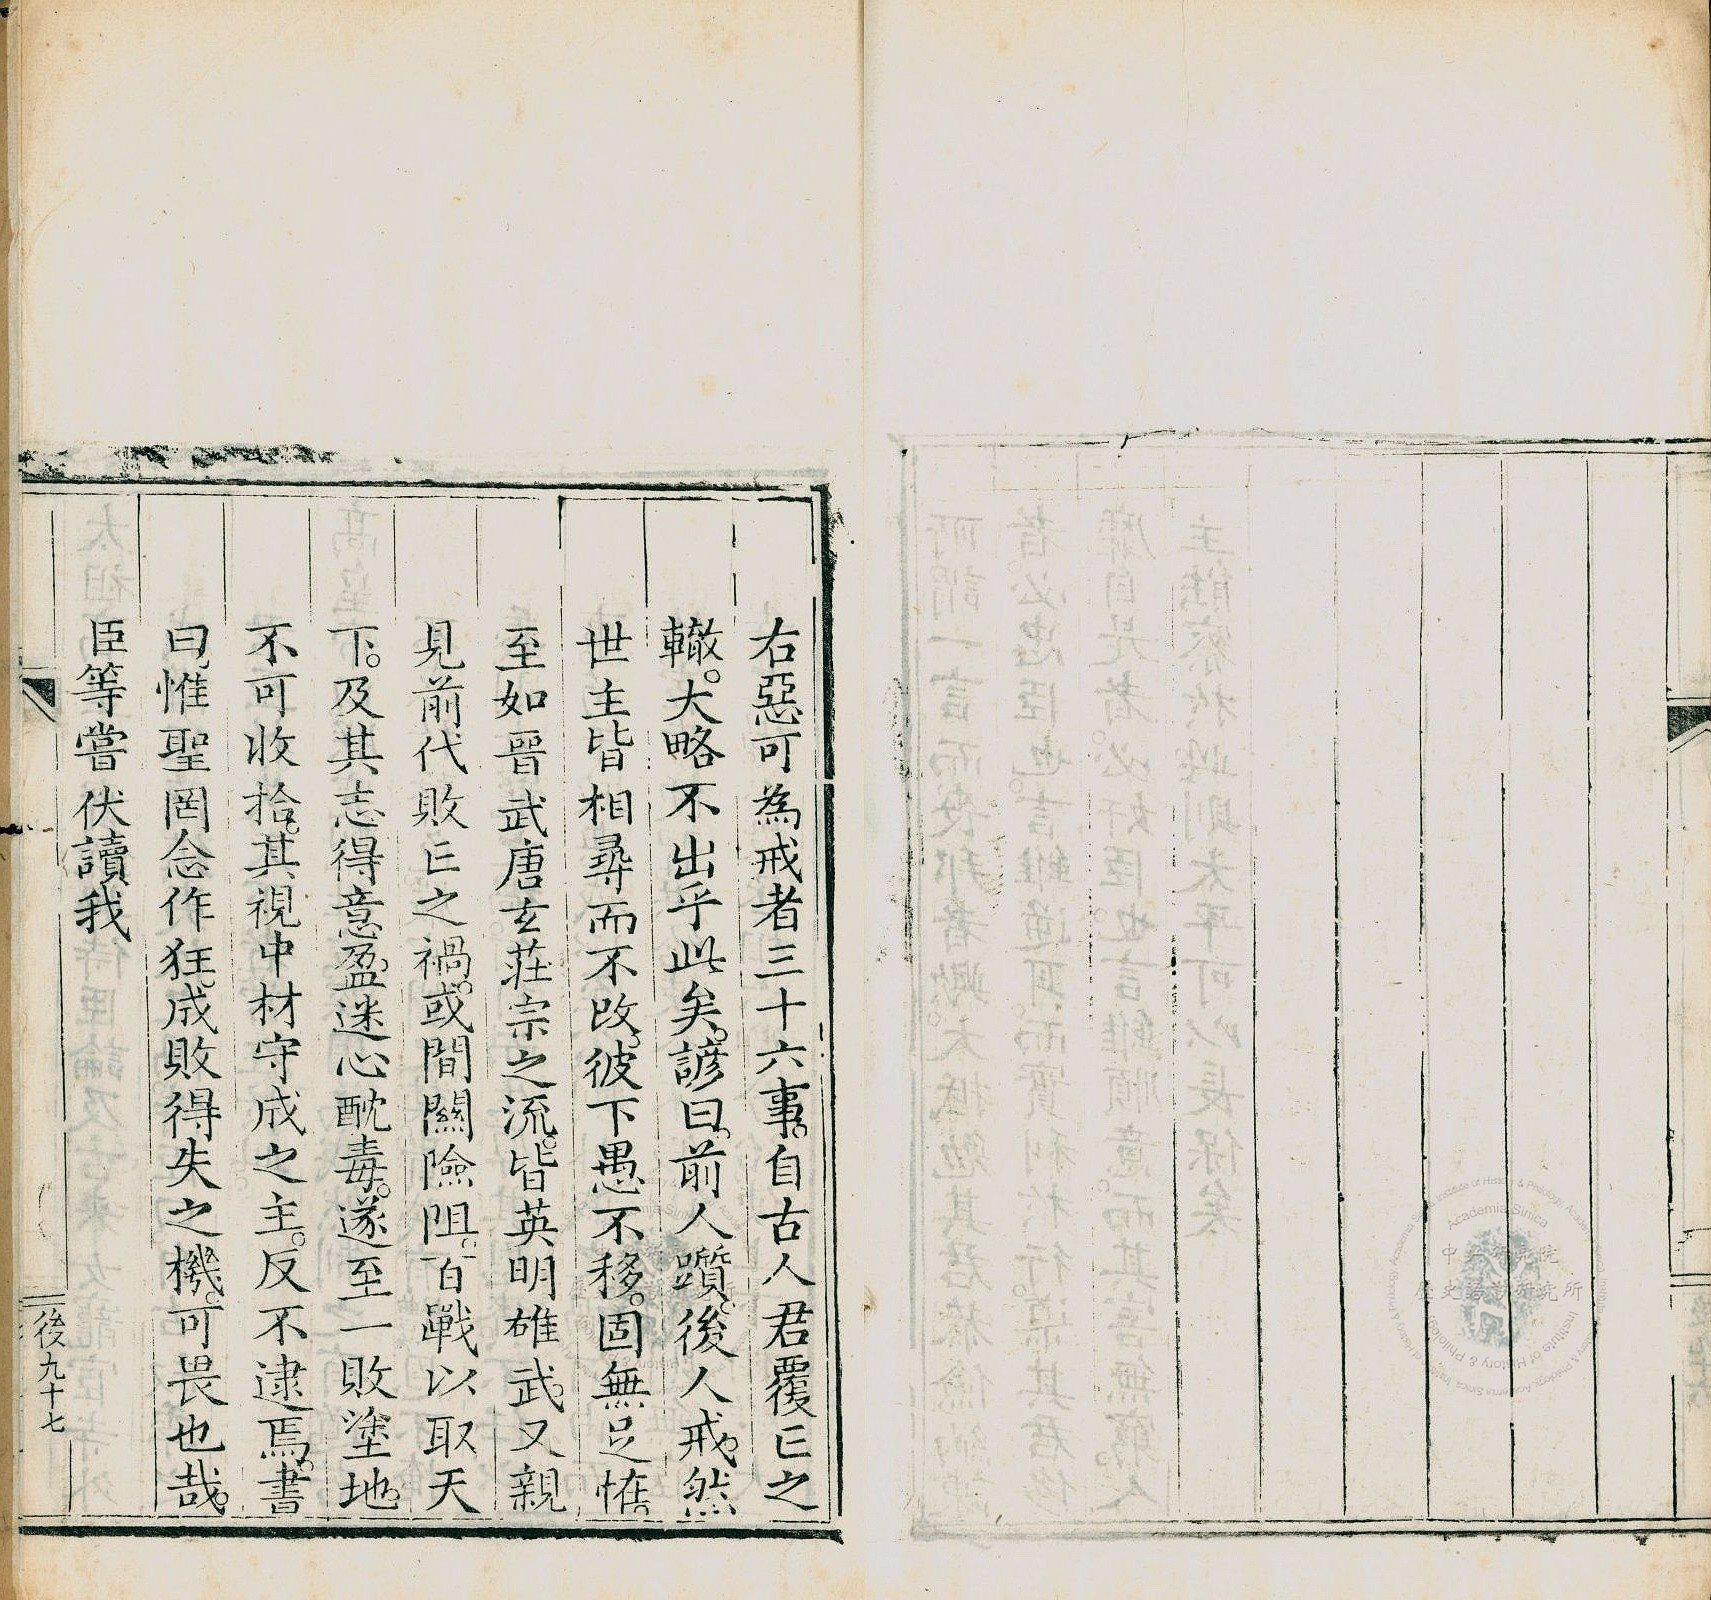 右惡可為戒者三十六事。自古人君覆亡之
轍。大略不出乎此矣。諺曰。前人躓。後人戒。然
世主皆相尋而不改。彼下愚不移。固無足怪。
至如晉武唐玄莊宗之流。皆英明雄武。又親
見前代敗亡之禍。或間關險阻。百戰以取天
下。及其志得意盈。迷心酖毒。遂至一敗塗地。
不可收拾。其視中材守成之主。反不逮焉。書
曰。惟聖罔念作狂。成敗得失之機。可畏也哉。
臣等嘗伏讀我
後九十七
Academia Sinica
中央研究院
歷史語言研究所
Institute of History & Philology